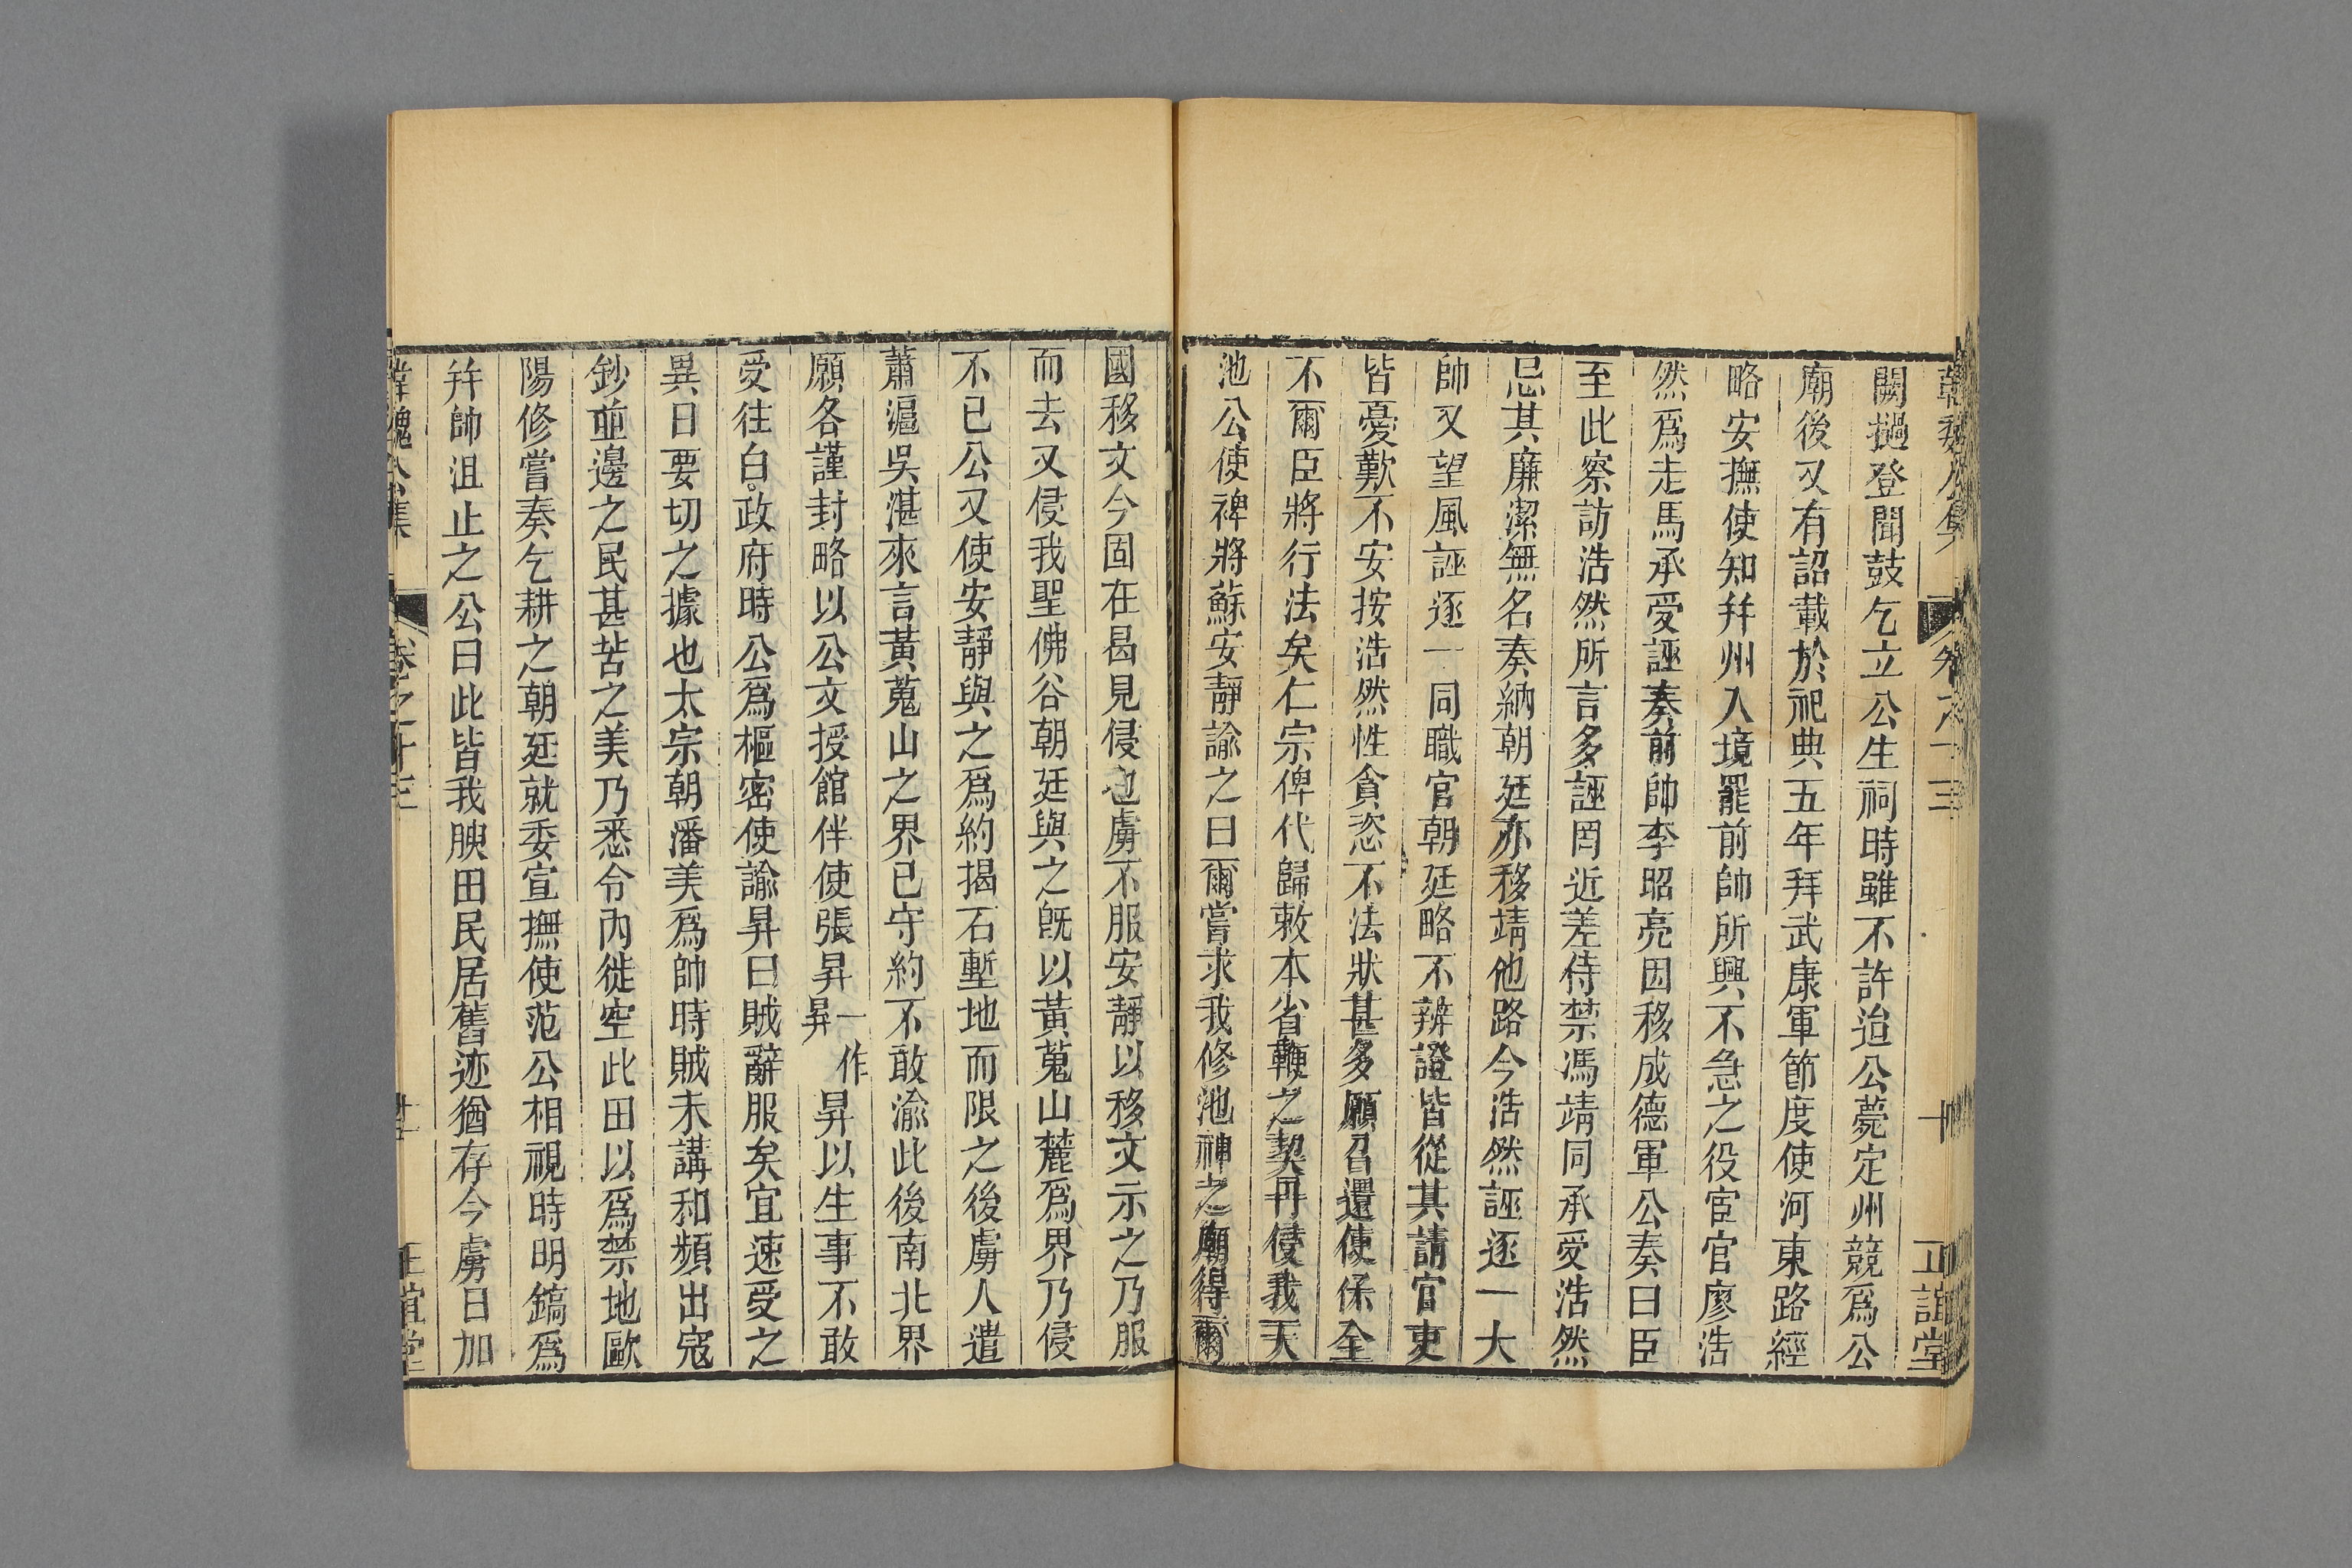 韓魏公集 卷之十三 十 正誼堂
闕撾登聞鼓乞立公生祠時雖不許迨公薨定州競爲公
廟後又有詔載於祀典五年拜武康軍節度使河東路經
略安撫使知幷州入境罷前帥所興不急之役宦官廖浩
然爲走馬承受誣奏前帥李昭亮因移成德軍公奏曰臣
至此察訪浩然所言多誣罔近差侍禁馮靖同承受浩然
忌其廉潔無名奏納朝廷亦移靖他路今浩然誣逐一大
帥又望風誣逐一同職官朝廷略不辨證皆從其請官吏
皆憂歎不安按浩然性貪恣不法狀甚多願召還使保全
不爾臣將行法矣仁宗俾代歸敕本省鞭之契丹侵我天
池公使裨將蘇安靜諭之曰爾嘗求我修池神之廟得爾
國移文今固在曷見侵也虜不服安靜以移文示之乃服
而去又侵我聖佛谷朝廷與之旣以黃蒐山麓爲界乃侵
不已公又使安靜與之爲約揭石塹地而限之後虜人遣
蕭滬吳湛來言黃蒐山之界已守約不敢渝此後南北界
願各謹封略以公文授館伴使張昇一作昇昇以生事不敢
受往白政府時公爲樞密使諭昇曰賊辭服矣宜速受之
異日要切之據也太宗朝潘美爲帥時賊未講和頻出寇
鈔並邊之民甚苦之美乃悉令內徙空此田以爲禁地歐
陽修嘗奏乞耕之朝廷就委宣撫使范公相視時明鎬爲
幷帥沮止之公曰此皆我腴田民居舊迹猶存今虜日加
韓魏公集 卷之十三 正誼堂